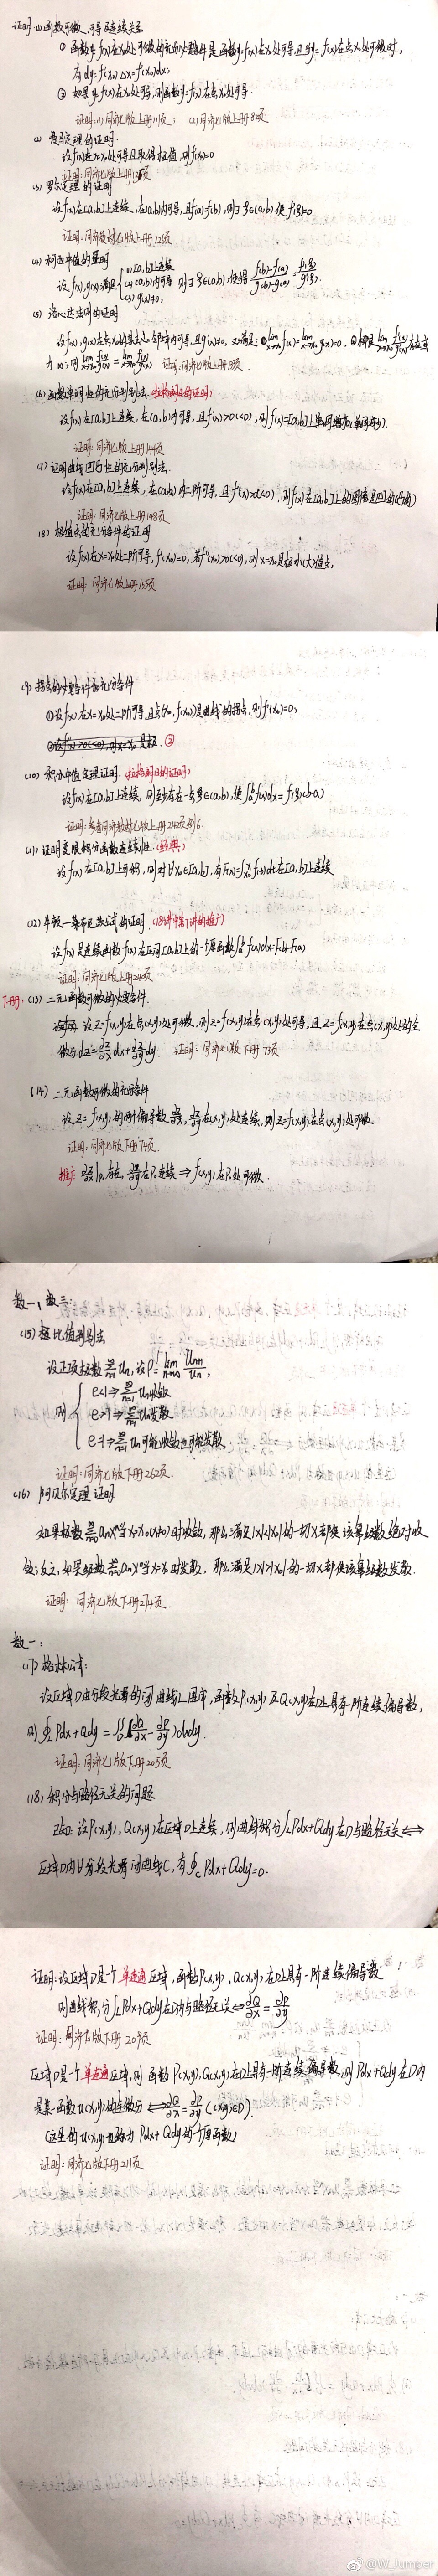 证明:(1)函数可微、可导及连续关系
① 函数y=f(x)在x₀处可微的充分必要条件是函数y=f(x)在x₀处可导,且当y=f(x)在点x₀处可微时,
有dy=f'(x₀)Δx=f'(x₀)dx;
② 如果y=f(x)在x₀处可导,则函数y=f(x)在点x₀处可导.
证明:(1)同济七版上册111页; (2)同济七版上册82页
(2) 费马定理的证明:
设f(x)在x=x₀处可导且取得极值,则f'(x₀)=0
证明:同济七版上册125页
(3) 罗尔定理的证明
设f(x)在[a,b]上连续,在(a,b)内可导,且f(a)=f(b),则∃ξ∈(a,b)使f'(ξ)=0
证明:同济教材七版上册126页
(4) 柯西中值的证明
设f(x),g(x)满足 (1)[a,b]上连续 (2)(a,b)内可导 (3)g'(x)≠0, 则∃ξ∈(a,b),使得 f(b)-f(a)/g(b)-g(a) = f'(ξ)/g'(ξ).
(5) 洛必达法则的证明
设f(x),g(x)在点x₀的某去心邻域内可导,且g'(x)≠0,又满足:①lim f(x)=lim g(x)=0.②极限lim f'(x)/g'(x)存在或
为∞,则 lim f(x)/g(x) = lim f'(x)/g'(x) 证明:同济七版上册
(6) 函数单调性的充分判别法
设f(x)在[a,b]上连续,在(a,b)内可导,且f'(x)>0(<0),则f(x)在[a,b]上单调增加(单调减少).
证明:同济七版上册144页
(7) 证明曲线凹凸性的充分判别法.
设f(x)在[a,b]上连续,在(a,b)内二阶可导,且f''(x)>0(<0),则f(x)在[a,b]上的图像是凹的(凸的)
证明:同济七版上册148页
(8) 极值点的充分条件的证明
设f(x)在x=x₀处二阶可导,f'(x₀)=0,若f''(x₀)>0(<0),则x=x₀是极小(大)值点,
证明:同济七版上册155页
(9) 拐点的必要条件和充分条件
①设f(x)在x=x₀处二阶可导,且点(x₀,f(x₀))是曲线的拐点,则f''(x₀)=0;
②
(10) 积分中值定理证明.
设f(x)在[a,b]上连续,则至少存在一点ξ∈(a,b),使∫ₐᵇf(x)dx=f(ξ)(b-a)
证明:参考同济教材七版上册242页例6
(11) 证明变限积分函数连续性.(经典)
设f(x)在[a,b]上可积,则对∀x₀∈[a,b],有F(x)=∫f(t)dt在[a,b]上连续
(12) 牛顿—莱布尼兹公式的证明.(18讲中第7讲的推广)
设f(x)是连续函数f(x)在区间[a,b]上的一个原函数∫ₐᵇf(x)dx=F(b)-F(a)
证明:同济七版上册240页
下册:(13) 二元函数可微的必要条件.
设z=f(x,y)在点(x,y)处可微,则z=f(x,y)在点(x,y)处可导,且z=f(x,y)在点(x,y)处的全
微分dz=∂z/∂x dx+∂z/∂y dy. 证明:同济七版下册73页
(14) 二元函数可微的充分条件
设z=f(x,y)的两个偏导数∂z/∂x,∂z/∂y在(x,y)处连续,则z=f(x,y)在点(x,y)处可微
证明:同济七版下册74页.
推广:∂z/∂x|P₀存在,∂z/∂y在P₀连续⇒f(x,y)在P₀处可微.
数一,数三:
(15) 比值判别法
设正项级数∑uₙ,设ρ=lim uₙ₊₁/uₙ,
则 ρ<1⇒∑uₙ收敛
ρ>1⇒∑uₙ发散
ρ=1⇒∑uₙ可能收敛也可能发散.
证明:同济七版下册262页.
(16) 阿贝尔定理证明
如果级数∑aₙxⁿ当x=x₀(x₀≠0)时收敛,那么满足|x|<|x₀|的一切x都使该幂级数绝对收
敛;反之,如果级数∑aₙxⁿ当x=x₀时发散,那么满足|x|>|x₀|的一切x都使该幂级数发散.
证明:同济七版下册274页.
数一:
(17) 格林公式:
设区域D由分段光滑的闭曲线L围成,函数P(x,y)及Q(x,y)在D上具有一阶连续偏导数,
则∮Pdx+Qdy=∬(∂Q/∂x-∂P/∂y)dxdy.
证明:同济七版下册205页
(18) 积分与路径无关的问题
已知:设P(x,y),Q(x,y)在区域D上连续,则曲线积分∫Pdx+Qdy在D与路径无关⇔
区域D内∀分段光滑闭曲线C,有∮Pdx+Qdy=0.
证明:设区域D是一个单连通区域,函数P(x,y),Q(x,y)在D上具有一阶连续偏导数
则曲线积分∫Pdx+Qdy在D内与路径无关⇔∂Q/∂x=∂P/∂y
证明:同济七版下册209页
区域D是一个单连通区域,则函数P(x,y),Q(x,y)在D上具有一阶连续偏导数,则Pdx+Qdy在D内
是某一函数u(x,y)的全微分⇔∂Q/∂x=∂P/∂y((x,y)∈D).
(这里的u(x,y)也称为Pdx+Qdy的一个原函数)
证明:同济七版下册211页
@W_Jumper